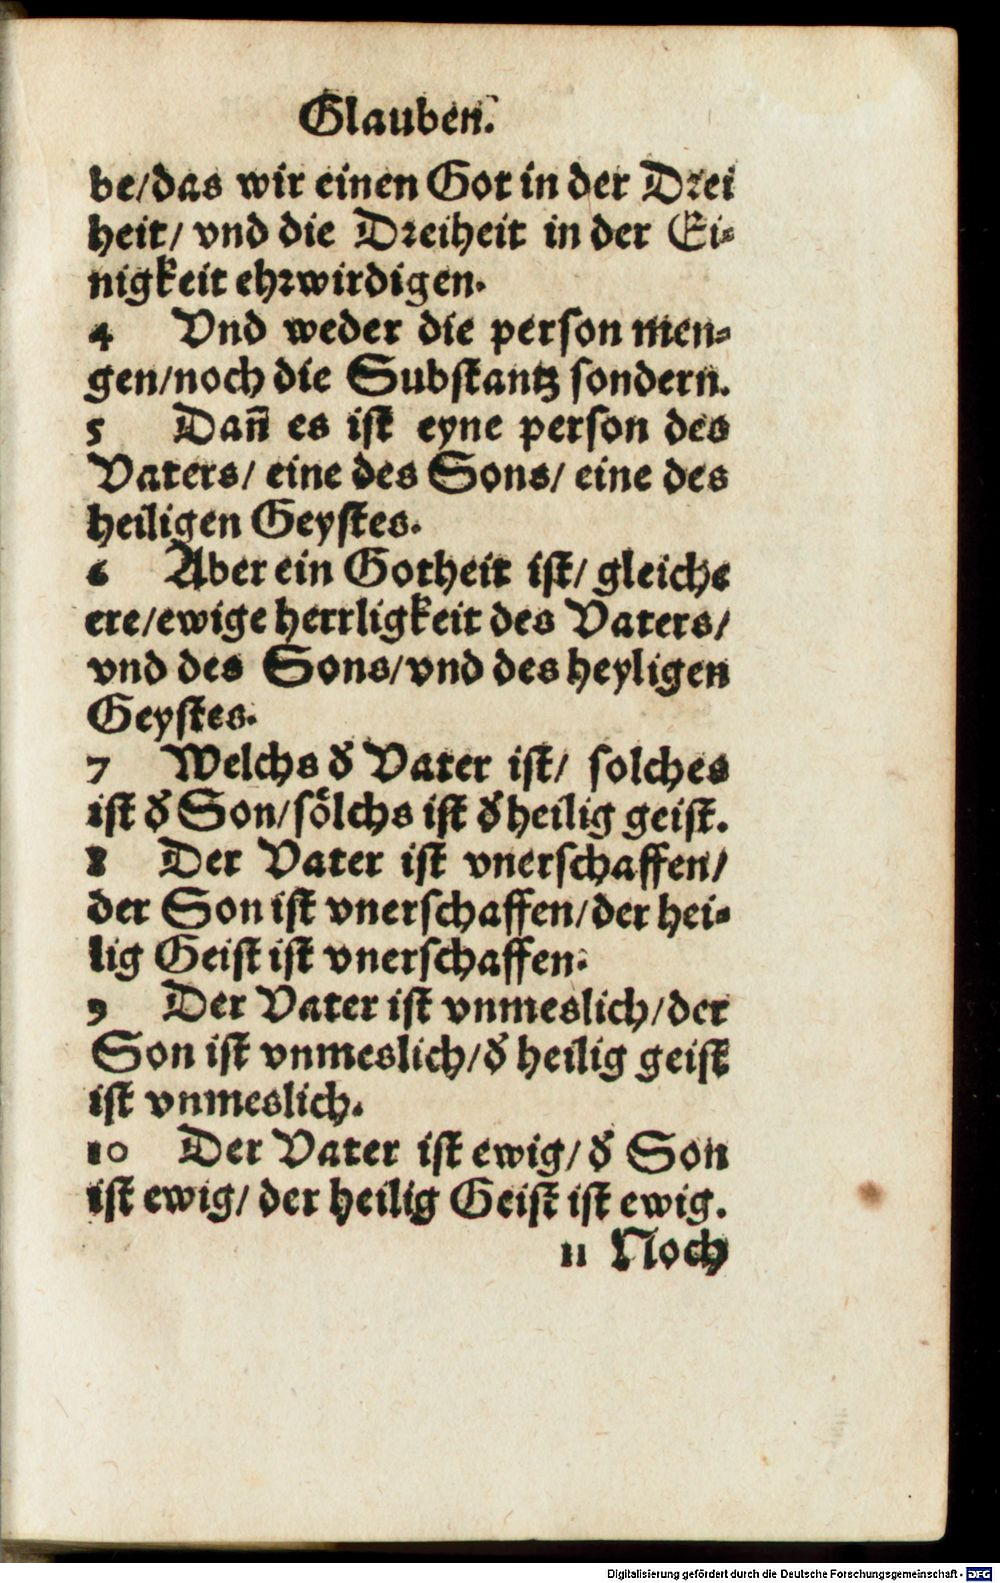 Glauben.
be/das wir einen Got in der Drei
heit/ vnd die Dreiheit in der Ei⸗
nigkeit ehrwirdigen.
4 Vnd weder die person men⸗
gen/noch die Substantz sondern.
5 Dañ es ist eyne person des
Vaters/ eine des Sons/ eine des
heiligen Geystes.
6 Aber ein Gotheit ist/ gleiche
ere/ewige herrligkeit des Vaters/
vnd des Sons/vnd des heyligen
Geystes.
7 Welchs d̕ Vater ist/ solches
ist d̕ Son/sölchs ist d̕ heilig geist.
8 Der Vater ist vnerschaffen/
der Son ist vnerschaffen/der hei⸗
lig Geist ist vnerschaffen.
9 Der Vater ist vnmeslich/der
Son ist vnmeslich/d̕ heilig geist
ist vnmeslich.
10 Der Vater ist ewig/ d̕ Son
ist ewig/ der heilig Geist ist ewig.
11 Noch
Digitalisierung gefördert durch die Deutsche Forschungsgemeinschaft - DFG